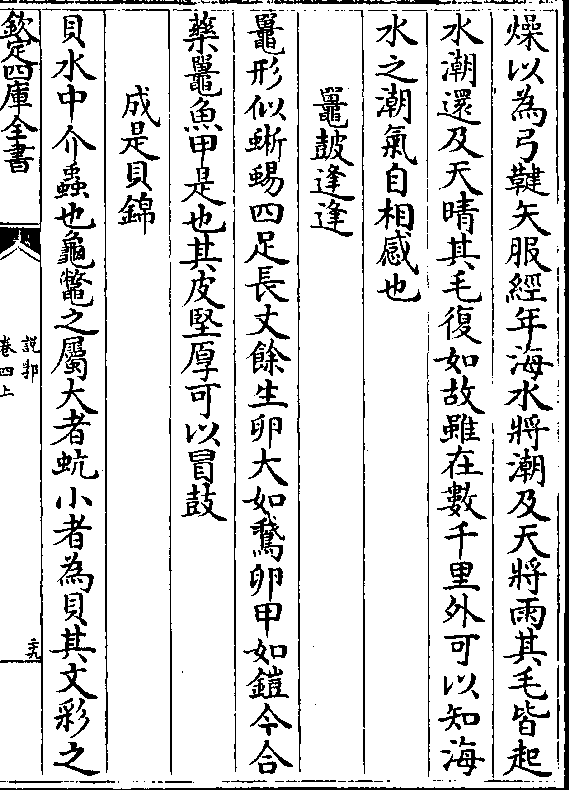 燥以為弓鞬矢服經年海水將潮及天將雨其毛皆起
水潮還及天晴其毛復如故雖在數千里外可以知海
水之潮氣自相感也
鼉鼓逢逢
鼉形似蜥蜴四足長丈餘生卵大如鵞卵甲如鎧今合
藥鼉魚甲是也其皮堅厚可以冒鼓
成是貝錦
貝水中介蟲也龜鼈之屬大者蚢小者為貝其文彩之
欽定四庫全書
說郛
卷四上